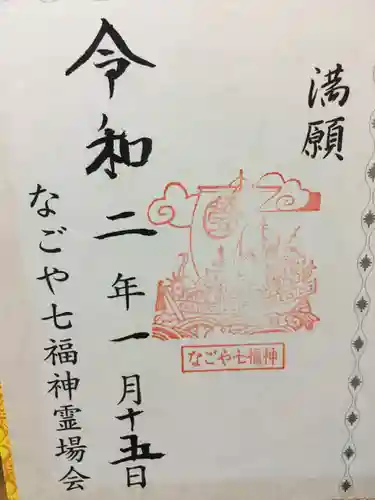 満願
令和二年一月十五日
なごや七福神
なごや七福神霊場会